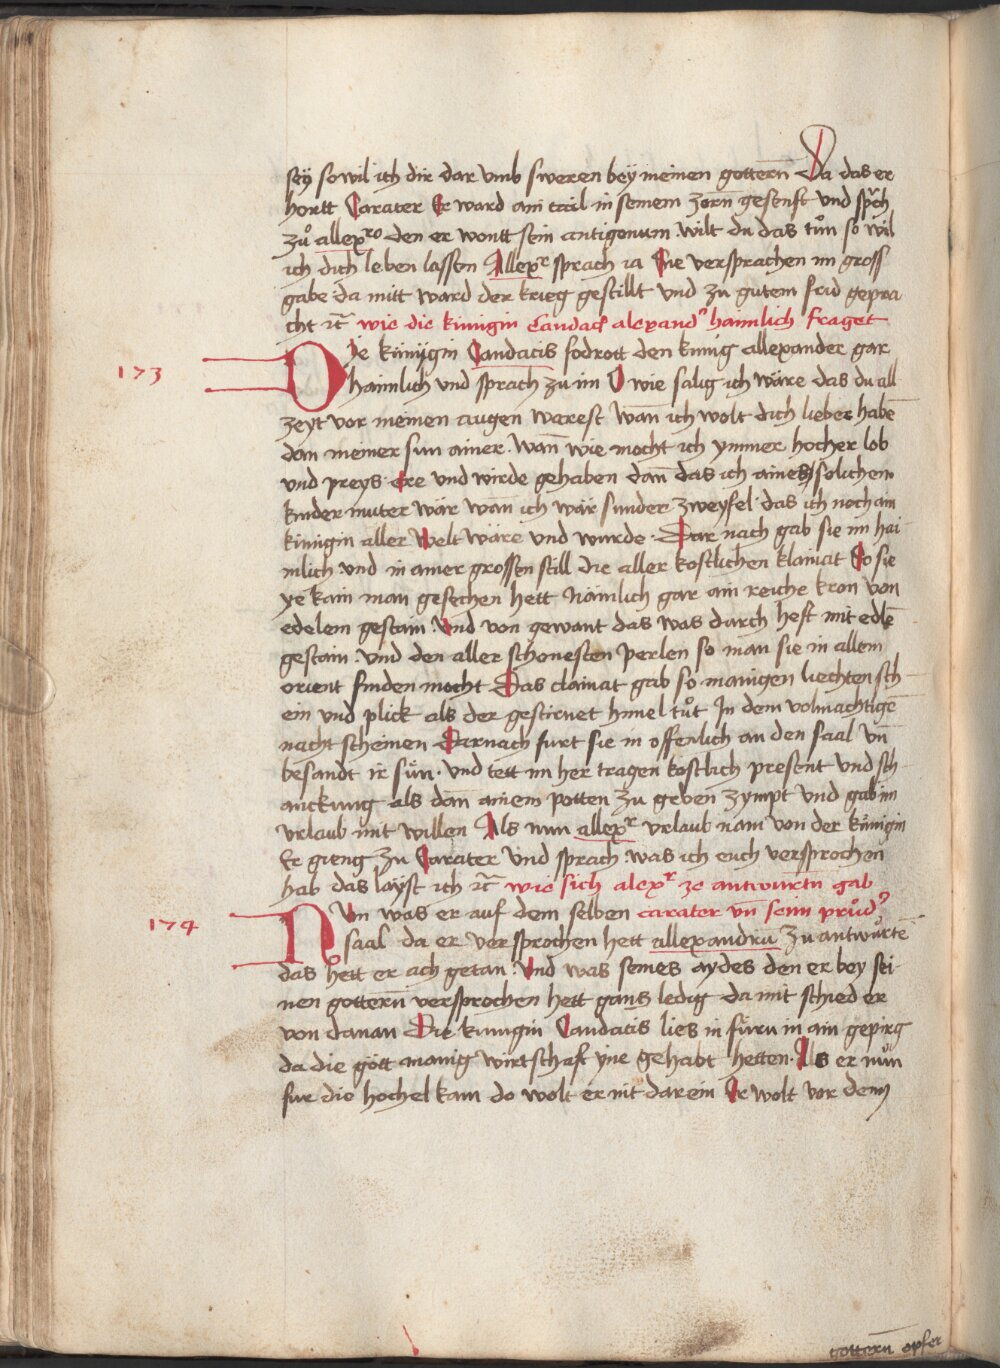 sey so wil ich dir dar vmb sweren bey meinen gotterñ Da das er
hortt Carater Er ward ain tail in seinem zorñ gesenft vnd spͬch
zů allexͬͦ den er wontt sein antigenum. wilt du das tůn so wil
ich dich leben lassen Allexͬ sprach ia Sie versprachen im gross
gabe da mitt ward der krieg gestillt vnd zu gutem frid gepra
cht ꝛc̃ wie die kinigin Candacͭ alexandʳ haimlich fraget
173 Die kiniygin Candacis fodrott den kunig allexander gar
haimlich vnd sprach zu im O wie salig ich wäre das du all
zeyt vor meinen augen warest wañ ich wolt dich lieber habē
dan meiner sun ainer. wañ wie mocht ich ymmer hocher lob
vnd preys ere vnd wirde gehaben dañ das ich aines solichem
kinder muter wär wañ ich wär sunder zweyfel das ich noch ain
kinigin aller welt wäre vnd wurde. Dar nach gab sie im hai
mlich vnd in ainer grossen still die aller kostlichen klainat So sie
ye kain man gesechen hett Nämlich gar ain reiche kron von
edelem gestain. Vnd von gewant das was darch heft mit edlē
gestain. Vnd den aller schonesten perlen so man sie in allem
orient finden mocht Das clainat gab so manigen liechten sch
ein vnd plick als der gestirnet himel tůt In dem volmachtigē
nacht scheinen Darnach furt sie in offenlich an den saal vñ
besandt ir sün. vnd tett im her tragen kostlich present vnd sch
anckung als dañ ainem potten zu geben zympt vnd gab im
vrlaub mit willen Als nun allexͬ vrlaub nam von der künigin
Er gieng zu Carater Vnd sprach was ich euch versprochen
hab das layst ich ꝛc̃ wie sich alexͬ ze antwurtñ gab
174 Nvn was er auf dem selben carater vñ seim průdʳ
saal da er versprochen hett allexandrū zu antwürtē
das hett er ach getan. Vnd was seines aydes den er bey sei
nen gotterñ versprochen hett gans ledig da mit schied er
von danan Die kunigin Candacis lies in fürn in ain gepirg
da die gött manig wirtschaft yne gehabt hetten. Als er nůn
fur die hochel kam do wolt er nit darein Er wolt vor dem
gotterñ opfer